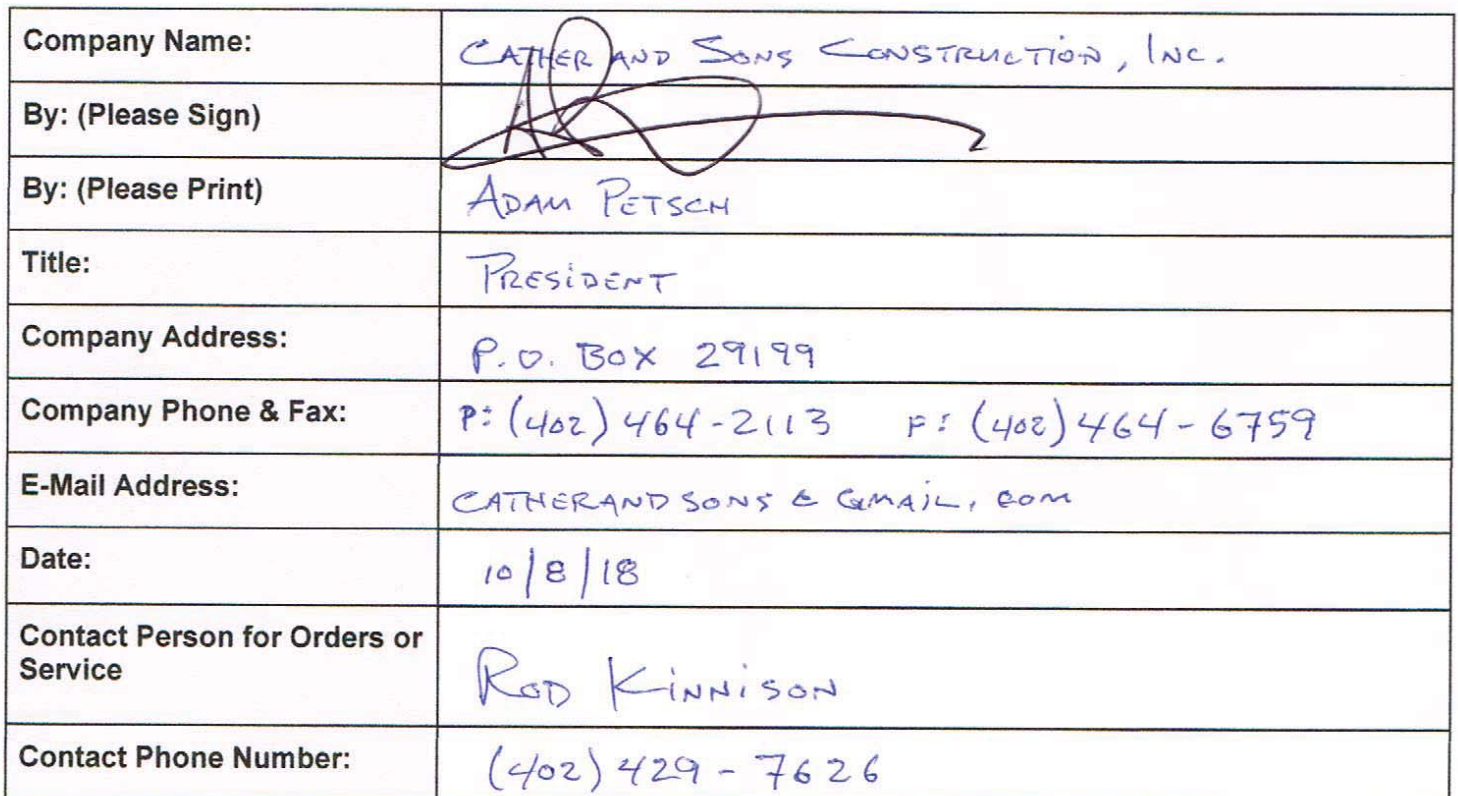 Company Name: CATHER AND SONS CONSTRUCTION, INC.
By: (Please Sign)
By: (Please Print) ADAM PETSCH
Title: PRESIDENT
Company Address: P.O. BOX 29199
Company Phone & Fax: P: (402) 464-2113 F: (402) 464-6759
E-Mail Address: CATHERANDSONS@GMAIL.COM
Date: 10/8/18
Contact Person for Orders or
Service ROD KINNISON
Contact Phone Number: (402) 429-7626